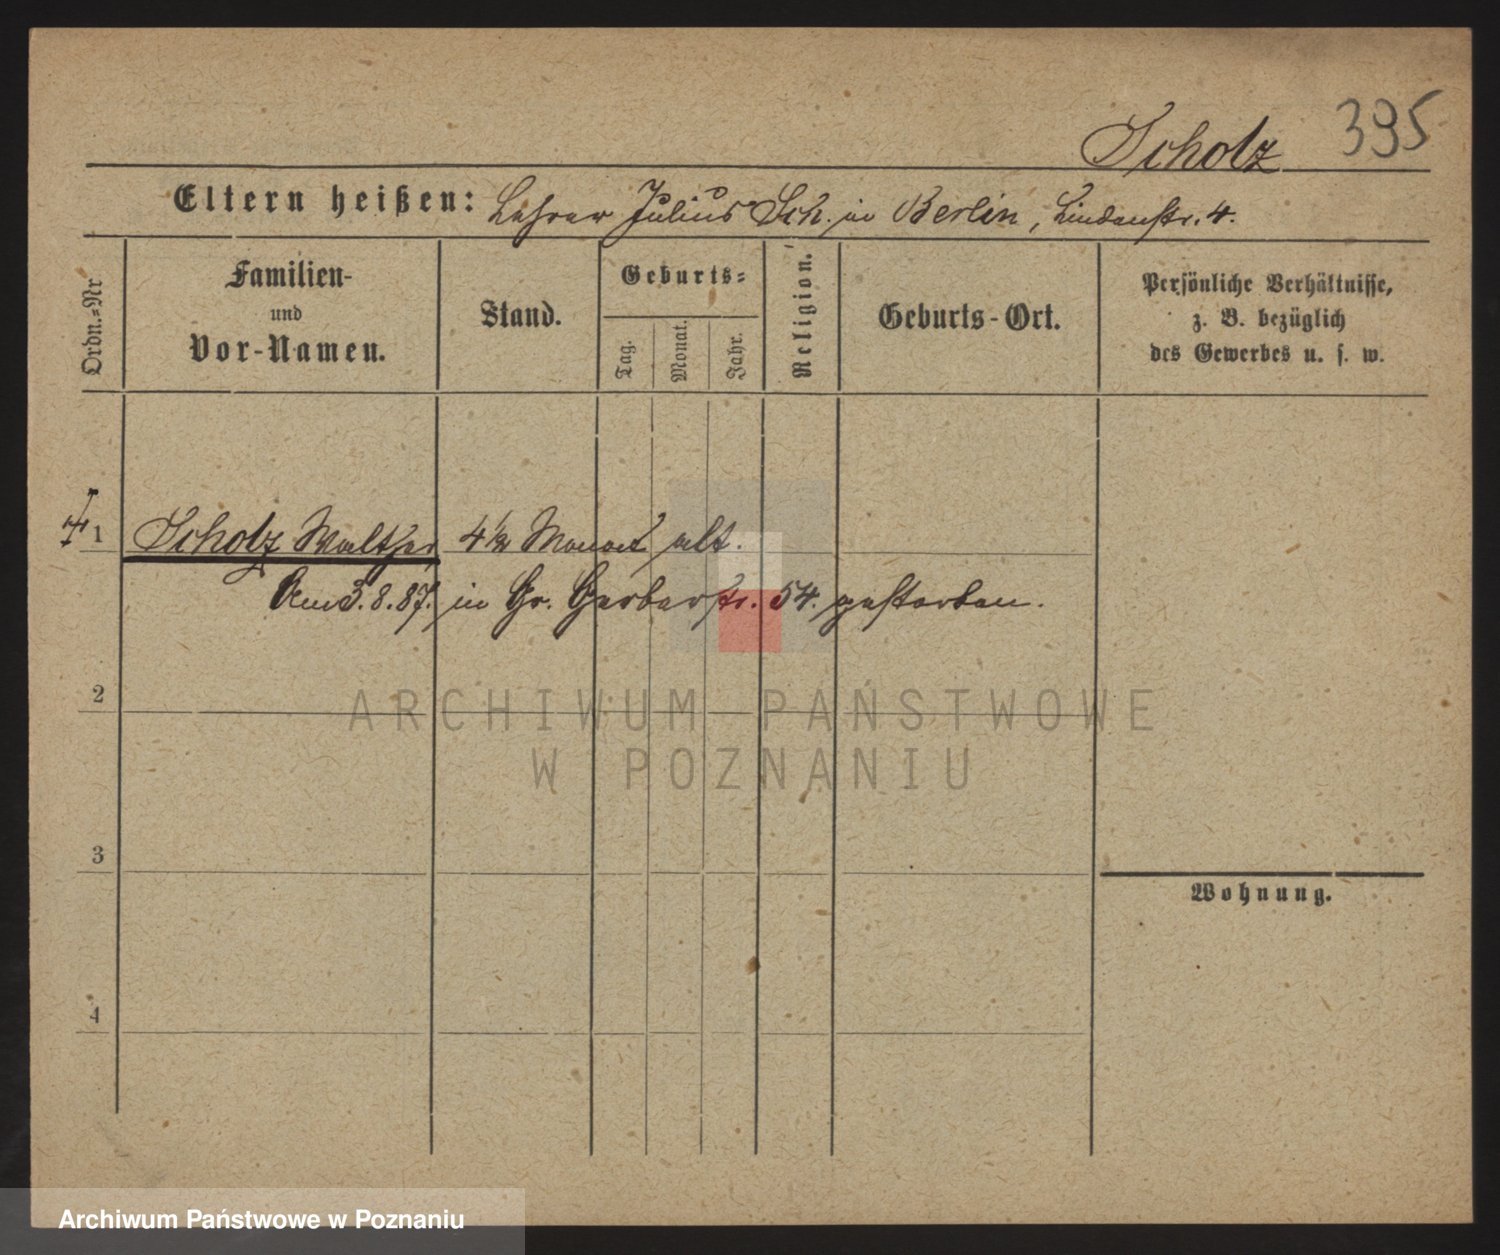 Scholz 395
Eltern heißen: Lehrer Julius Sch. in Berlin, Lindenstr. 4.
Ordn.=Nr
Familien-
und
Vor-Namen.
Stand.
Geburts=
Tag.
Monat.
Jahr.
Religion.
Geburts-Ort.
Persönliche Verhältnisse,
z. B. bezüglich
des Gewerbes u. s. w.
1 Scholz Walther 4 1/2 Monat alt.
Am 3.8.87. in Gr. Gerberstr. 54. gestorben.
2
ARCHIWUM PAŃSTWOWE
W POZNANIU
3
Wohnung.
4
Archiwum Państwowe w Poznaniu